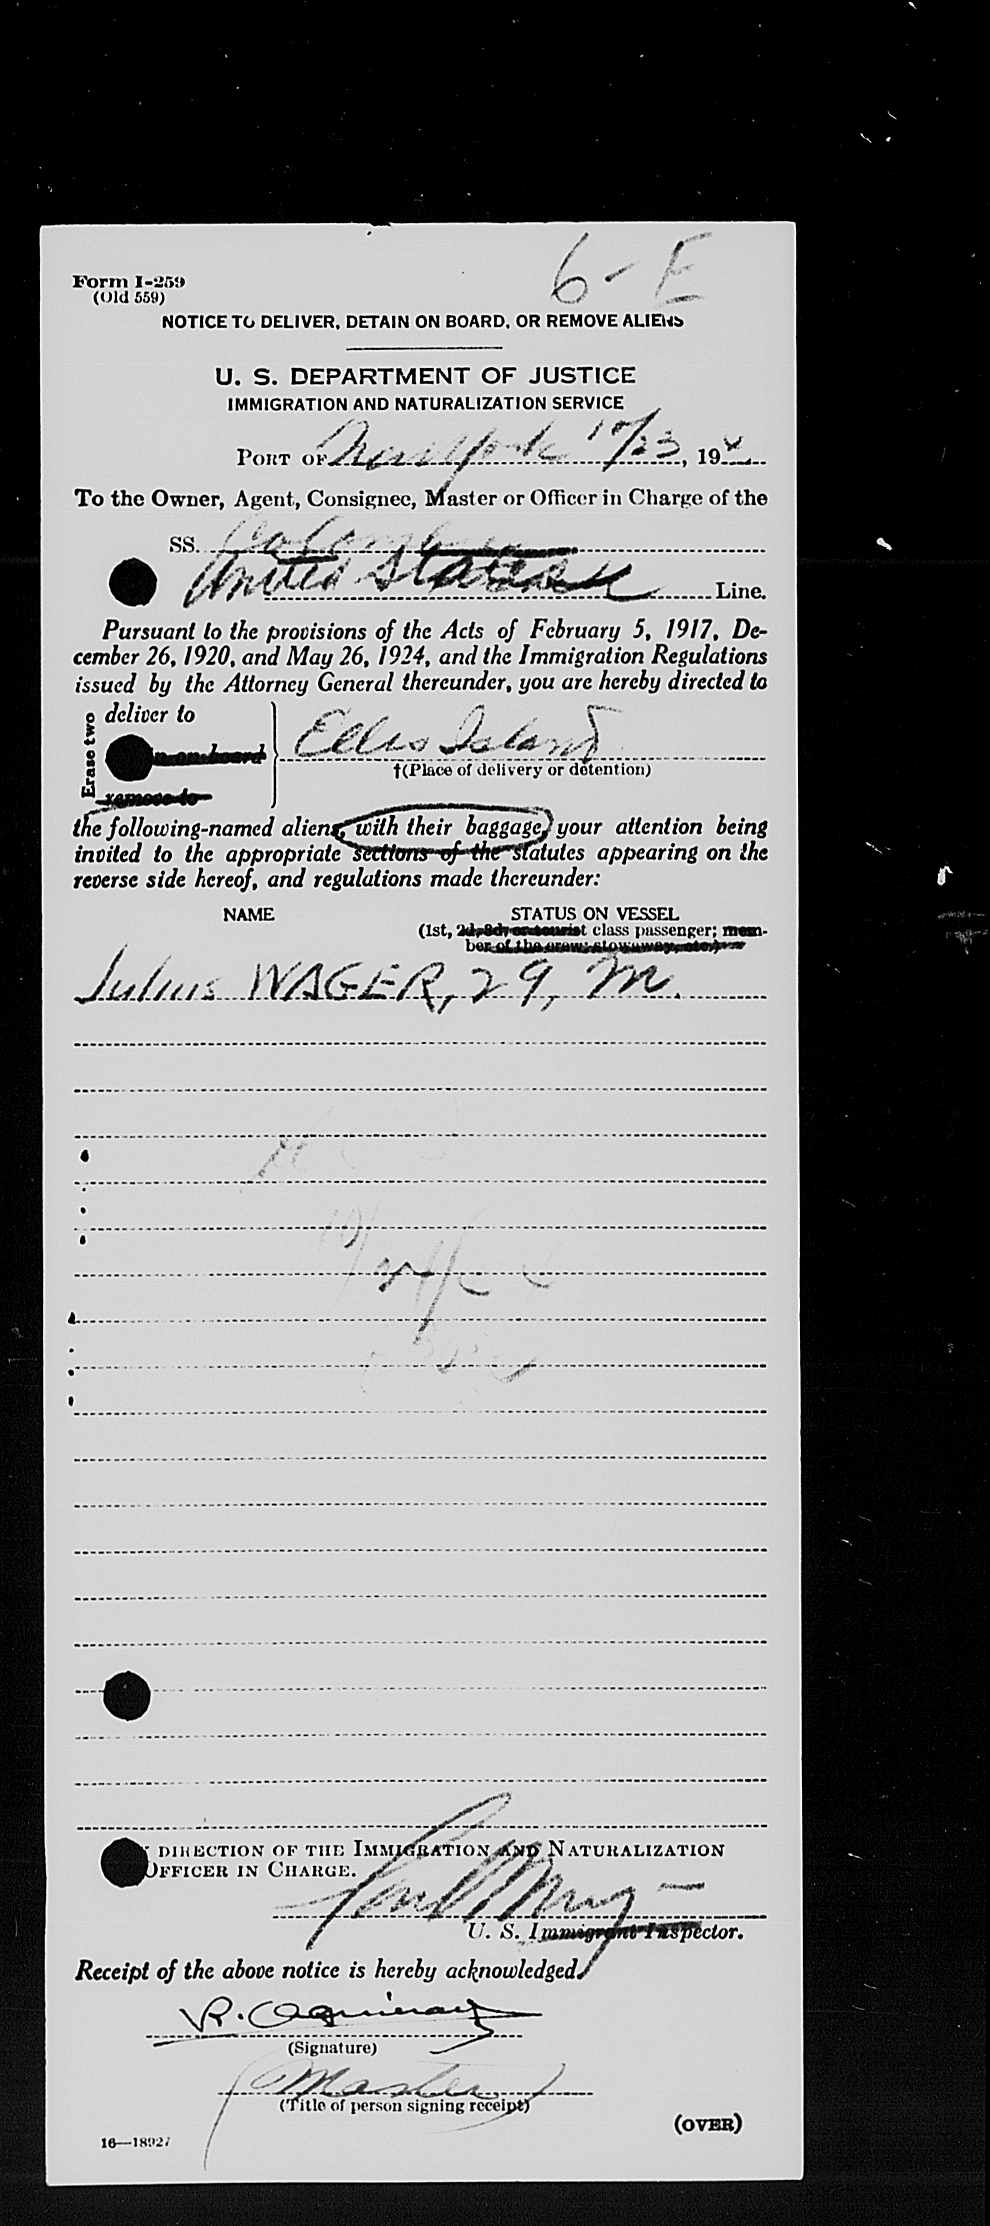 6-E
Form I-259
(Old 559)
NOTICE TO DELIVER, DETAIN ON BOARD, OR REMOVE ALIENS
U. S. DEPARTMENT OF JUSTICE
IMMIGRATION AND NATURALIZATION SERVICE
PORT OF New York /23, 194
To the Owner, Agent, Consignee, Master or Officer in Charge of the
SS.
United States Line.
Pursuant to the provisions of the Acts of February 5, 1917, De-
cember 26, 1920, and May 26, 1924, and the Immigration Regulations
issued by the Attorney General thereunder, you are hereby directed to
Erase two
deliver to
n on board
remove to
Ellis Island
†(Place of delivery or detention)
the following-named aliens, with their baggage, your attention being
invited to the appropriate sections of the statutes appearing on the
reverse side hereof, and regulations made thereunder:
NAME STATUS ON VESSEL
(1st, 2d, 3d, or tourist class passenger; mem-
ber of the crew; stowaway, etc.)
Julius WAGER, 29, M.
DIRECTION OF THE IMMIGRATION AND NATURALIZATION
OFFICER IN CHARGE.
U. S. Immigrant Inspector.
Receipt of the above notice is hereby acknowledged.
R.
(Signature)
Master
(Title of person signing receipt)
(OVER)
16—18927